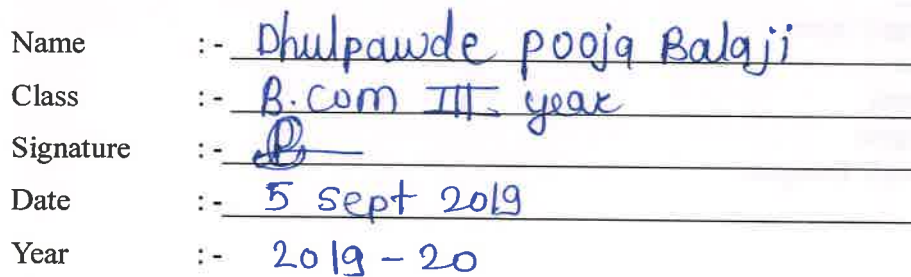 Name :- Dhulpawde pooja Balaji
Class :- B.com III year
Signature :-
Date :- 5 sept 2019
Year :- 2019-20